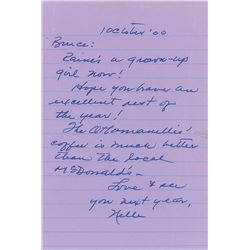 1 October '00
Bruce:
Raine's a grown-up
girl now!
Hope you have an
excellent rest of
the year!
The O'Romanellis'
coffee is much better
than the local
McDonald's—
Love & see
you next year,
Nelle